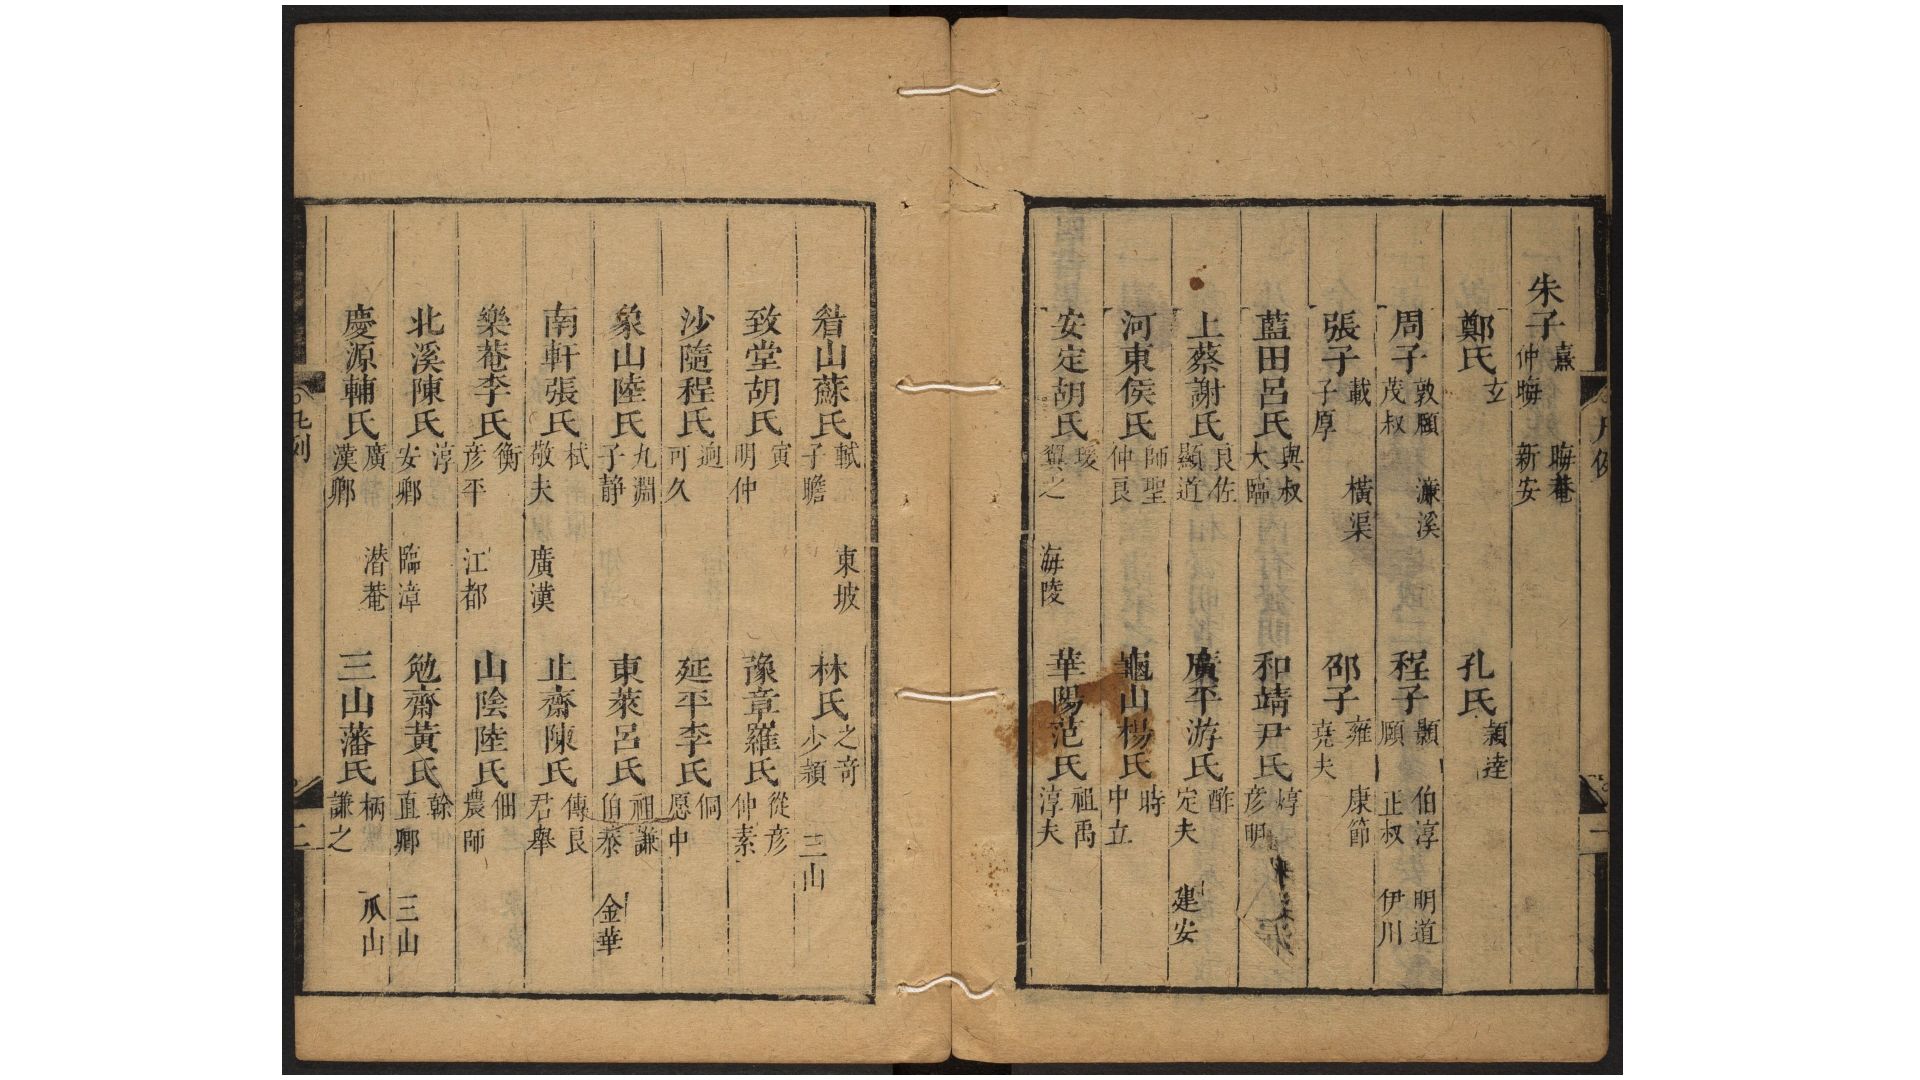 朱子 熹 仲晦 晦菴 新安
鄭氏 玄 孔氏 頴達
周子 敦頤 茂叔 濂溪 程子 顥 伯淳 明道 頤 正叔 伊川
張子 載 子厚 橫渠 邵子 雍 堯夫 康節
藍田呂氏 與叔 大臨 和靖尹氏 焞 彦明
上蔡謝氏 良佐 顯道 廣平游氏 酢 定夫 建安
河東侯氏 師聖 仲良 龜山楊氏 時 中立
安定胡氏 瑗 翼之 海陵 華陽范氏 祖禹 淳夫
眉山蘇氏 軾 子瞻 東坡 林氏 之奇 少頴 三山
致堂胡氏 寅 明仲 豫章羅氏 從彦 仲素
沙隨程氏 逈 可久 延平李氏 侗 愿中
象山陸氏 九淵 子静 東萊呂氏 祖謙 伯泰 金華
南軒張氏 栻 敬夫 廣漢 止齋陳氏 傅良 君舉
樂菴李氏 衡 彦平 江都 山陰陸氏 佃 農師
北溪陳氏 淳 安卿 臨漳 勉齋黃氏 榦 直卿 三山
慶源輔氏 廣 漢卿 潜菴 三山藩氏 柄 謙之 瓜山
凡例
二